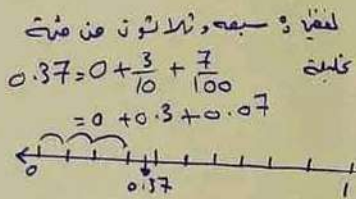 لفظيًا: سبعة وثلاثون من مئة
0.37 = 0 + 3/10 + 7/100
= 0 + 0.3 + 0.07
0 0.37 1